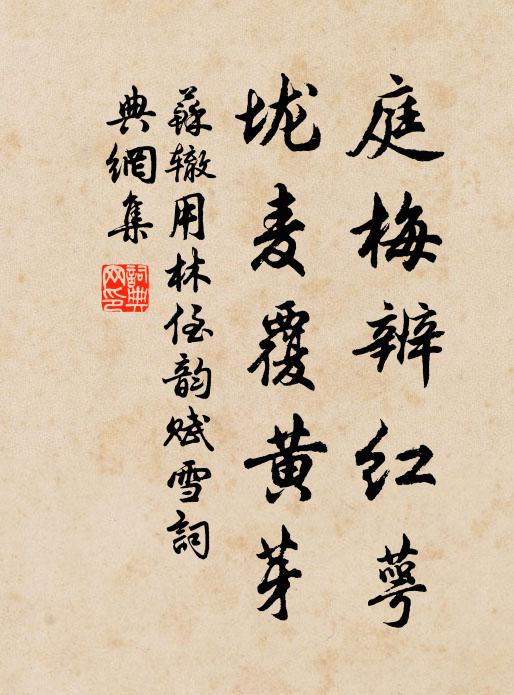 庭梅辨红萼
垅麦覆黄芽
蘇辙用林侄韵赋雪詞
典網集
詞典网印